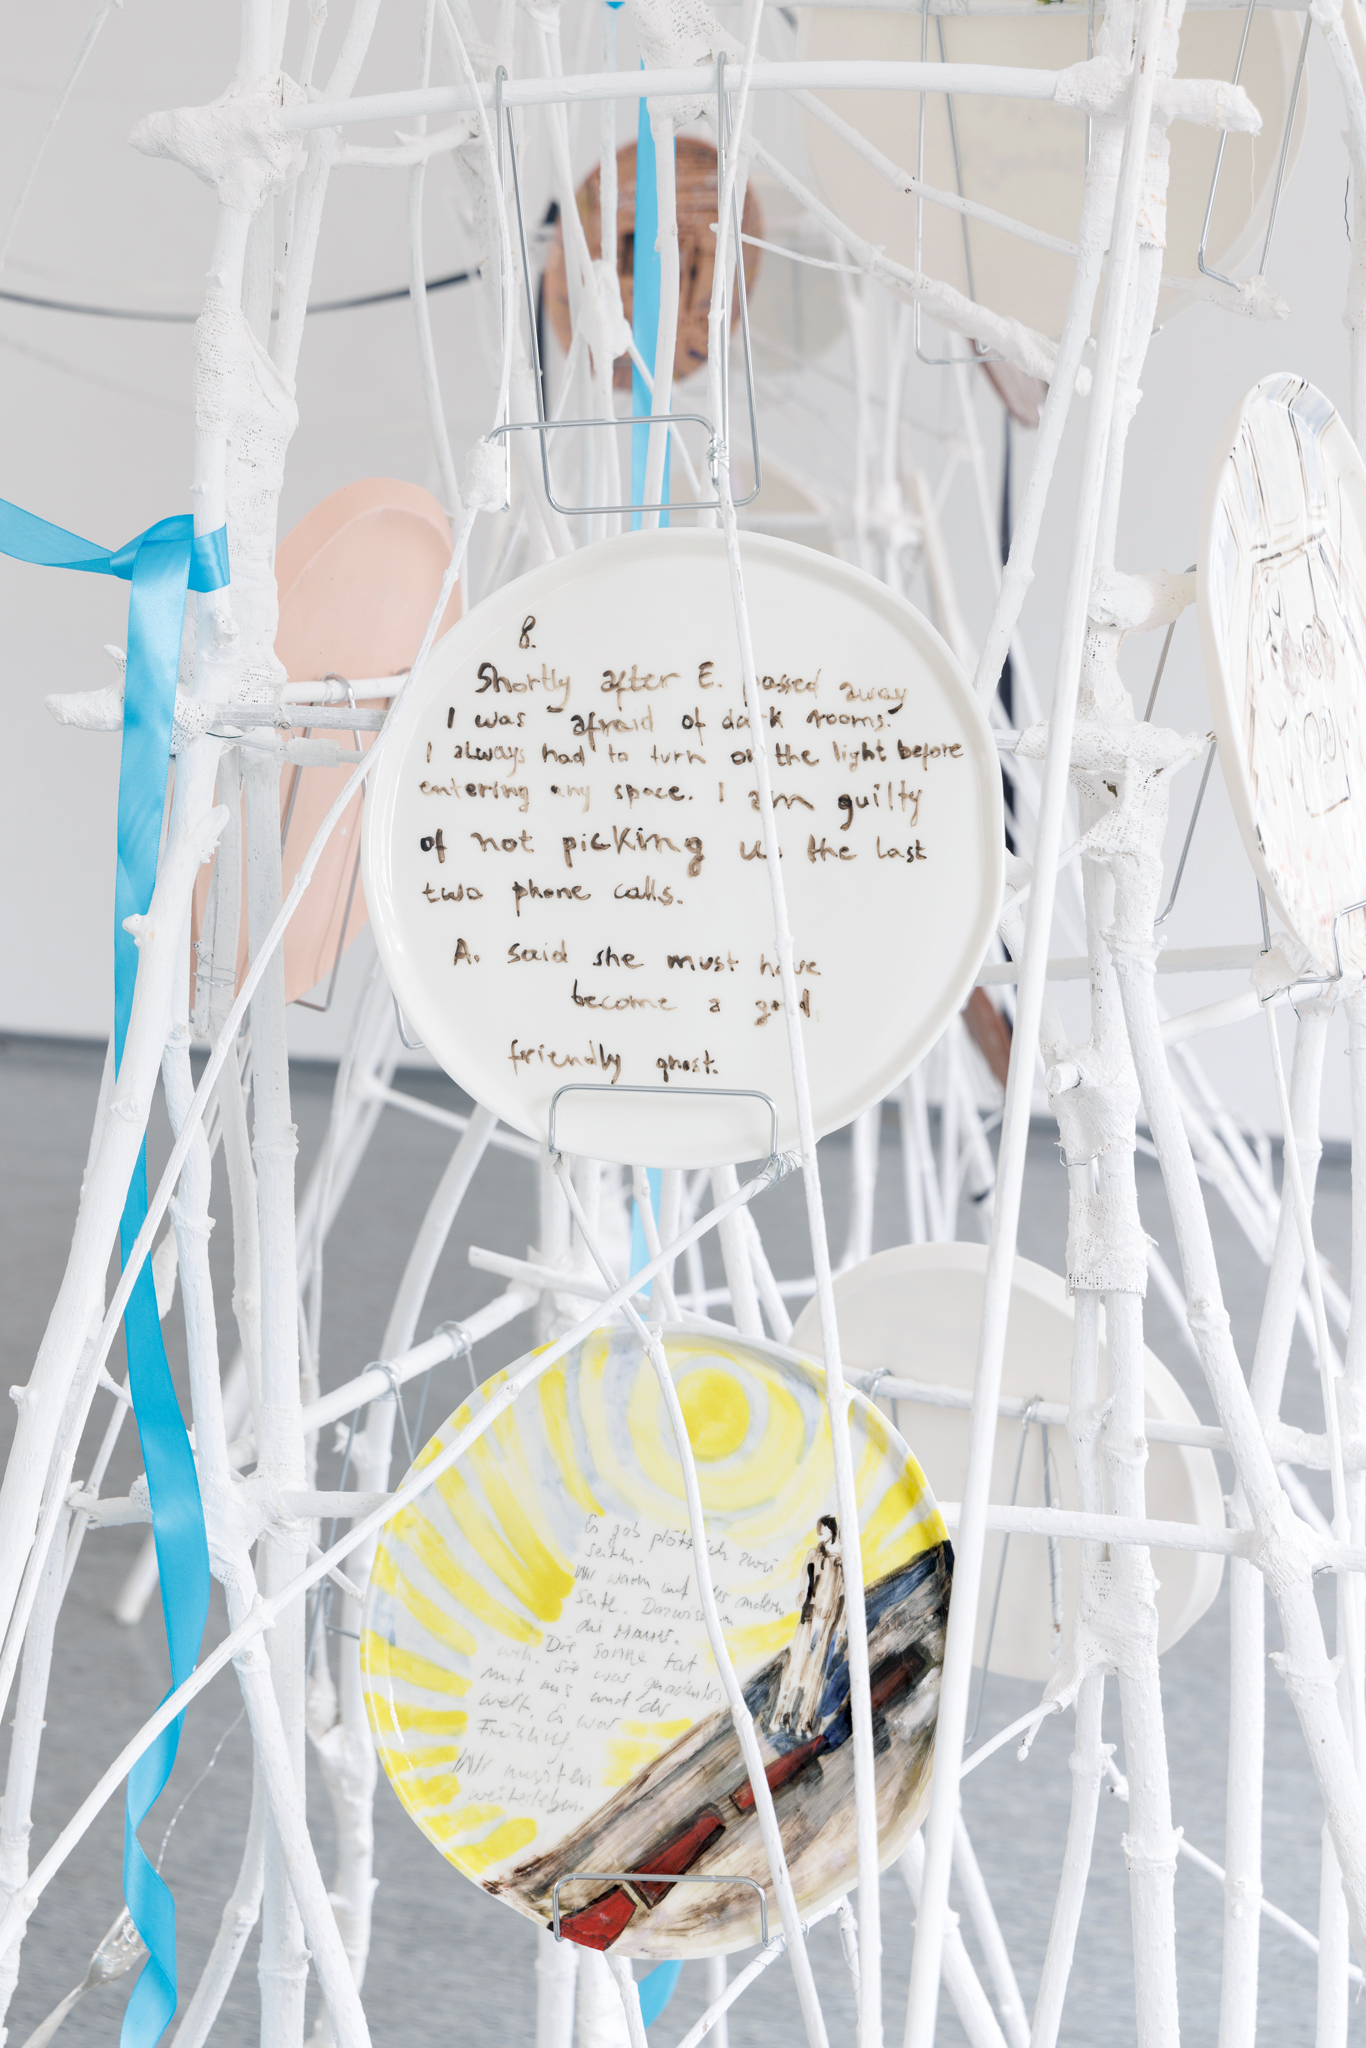 8.
Shortly after E. passed away
I was afraid of dark rooms.
I always had to turn on the light before
entering any space. I am guilty
of not picking up the last
two phone calls.
A. said she must have
become a good
friendly ghost.
Es gab plötzlich zwei
Seiten.
Wir waren auf der andern
Seite. Dazwischen
die Mauer.
weh. Die Sonne tat
mit uns und der
Welt. Es war
Frühling.
Wir mussten
weiterleben.